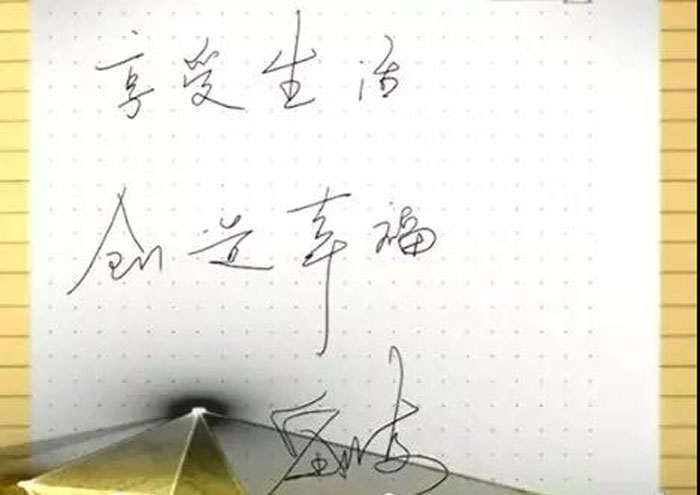 享受生活
创造幸福